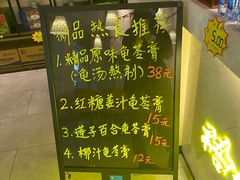 精品热食推荐
1.精品原味龟苓膏
(龟汤熬制) 38元
2.红糖姜汁龟苓膏
15元
3.莲子百合龟苓膏
15元
4.椰汁龟苓膏
12元